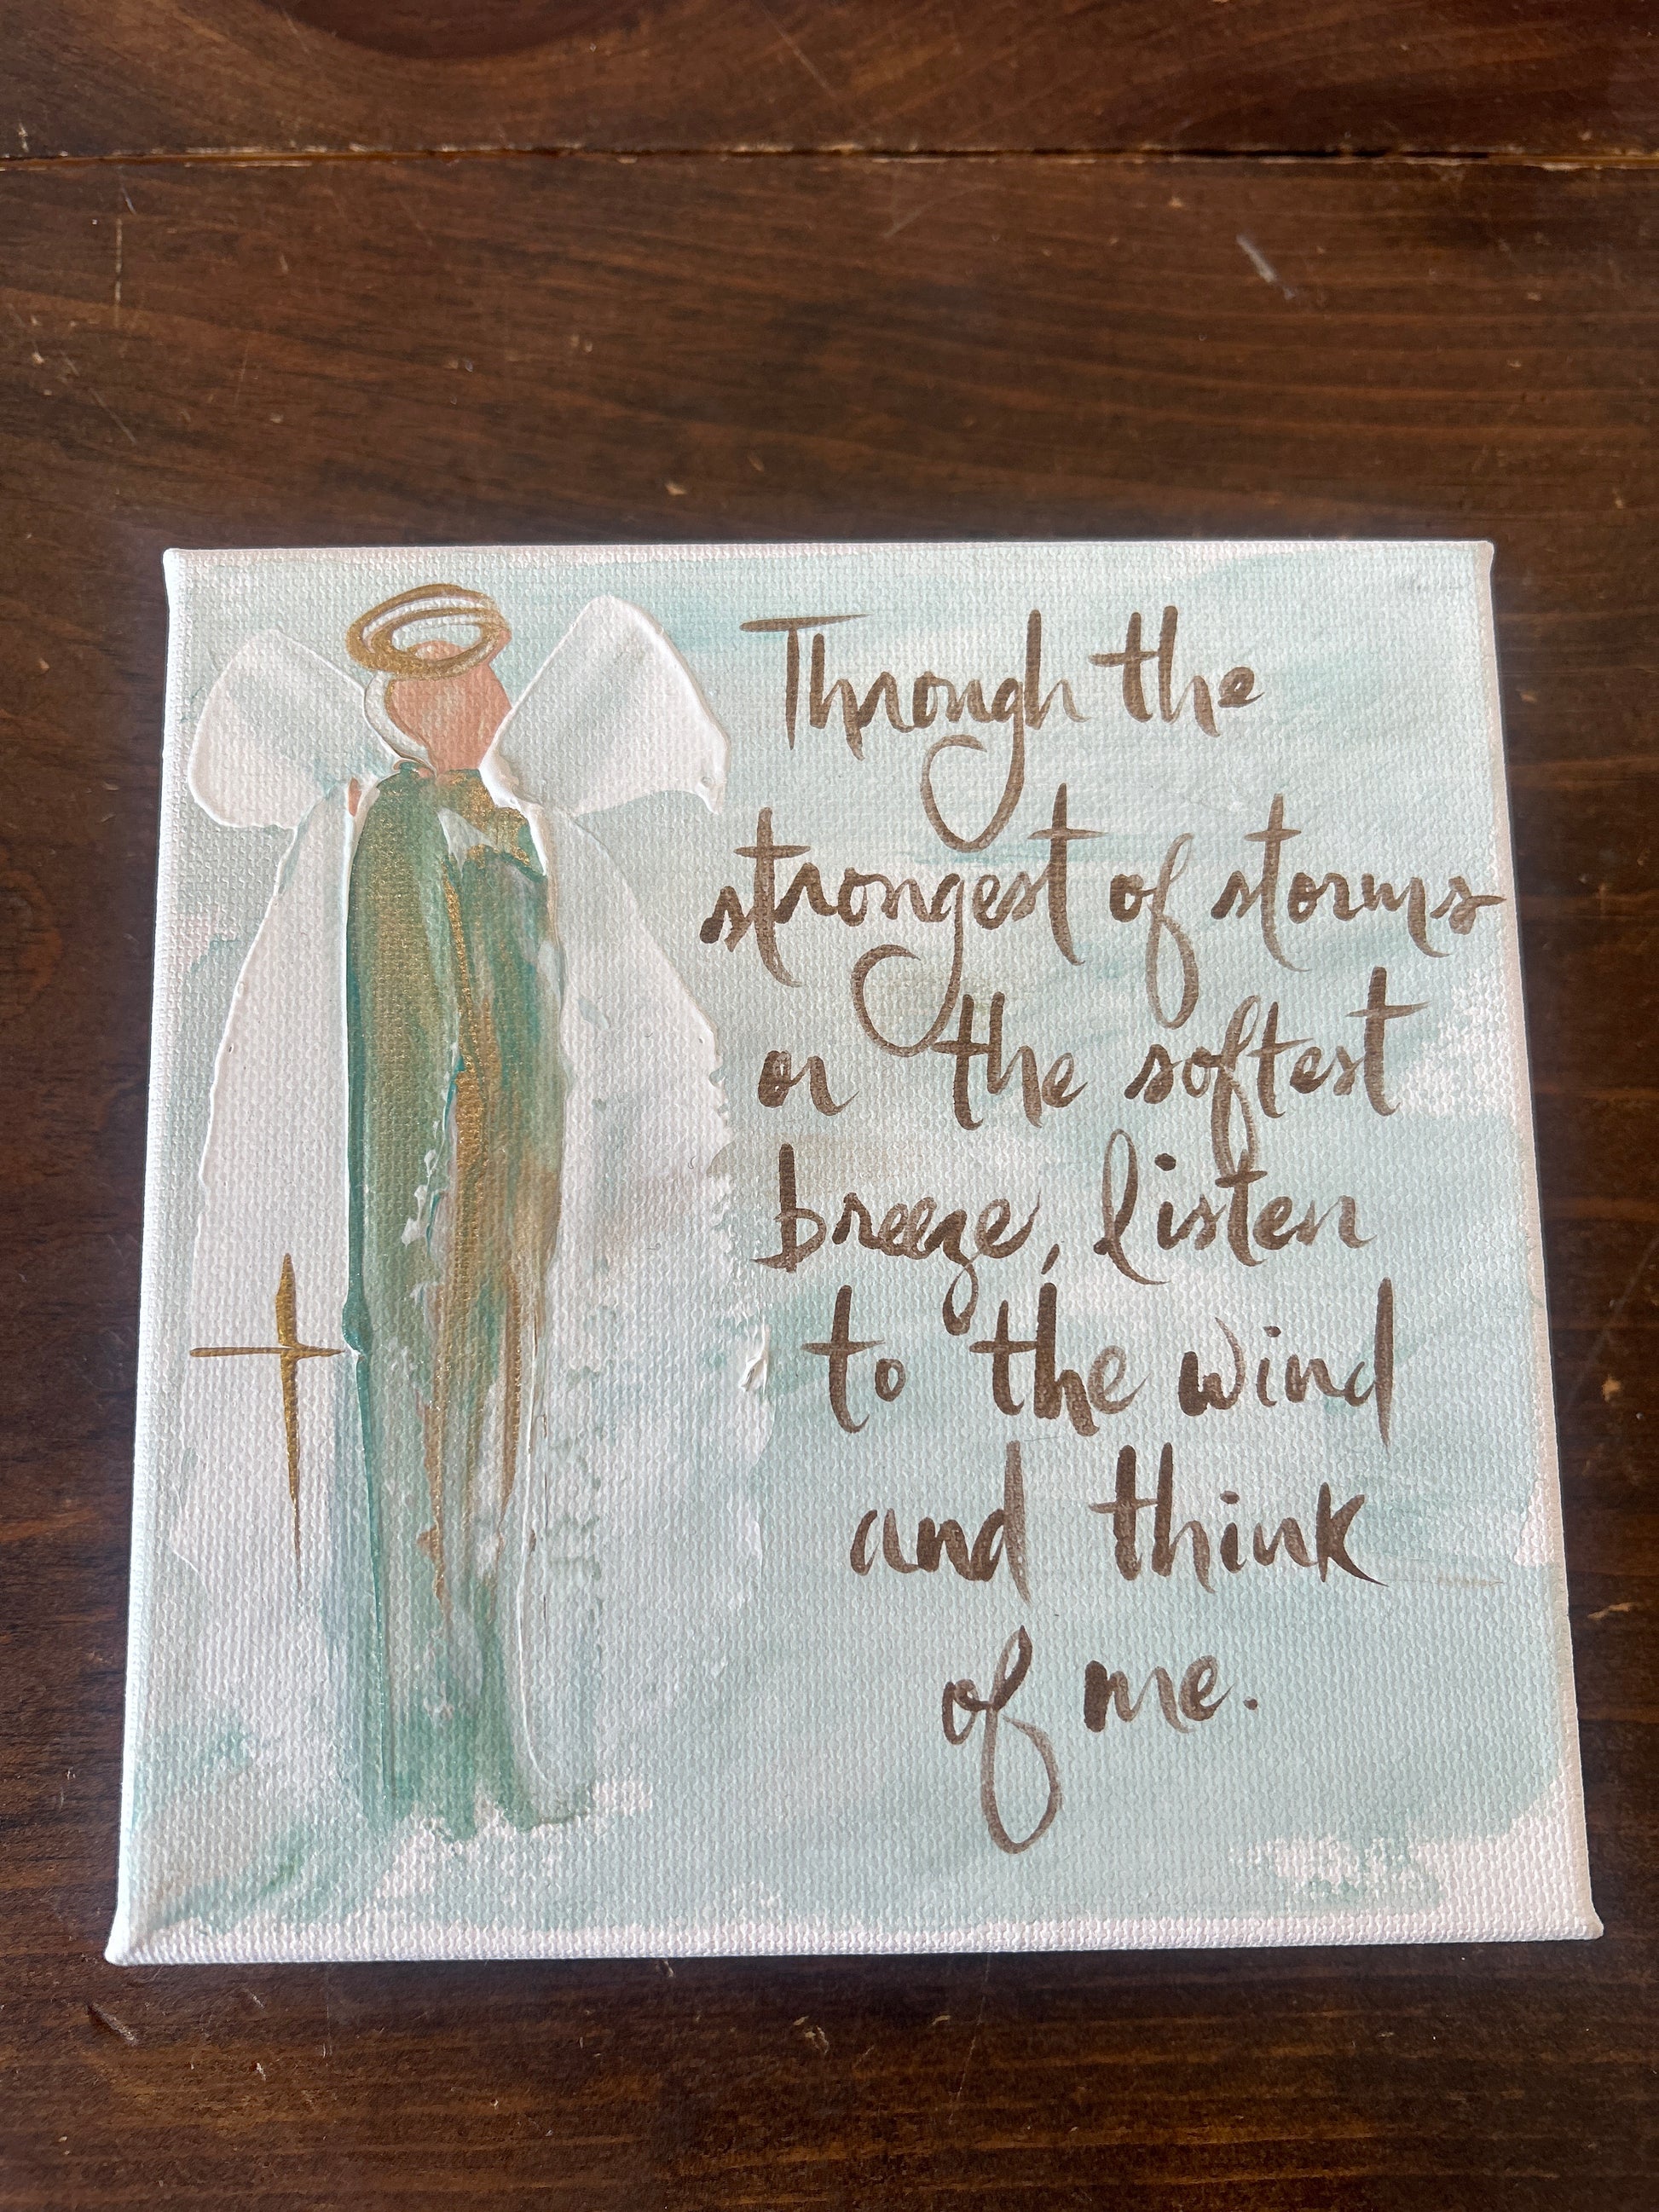 Through the
strongest of storms
or the softest
breeze, listen
to the wind
and think
of me.